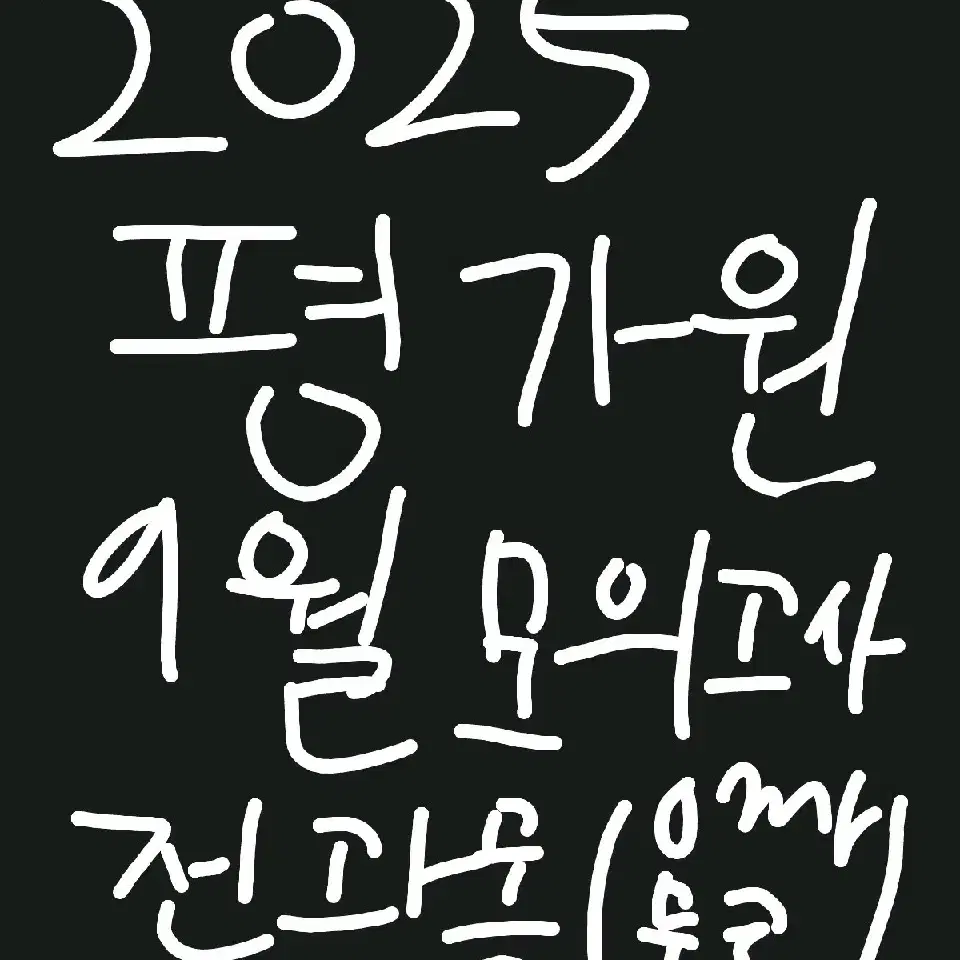 2025
평가원
9월 모의고사
전과목